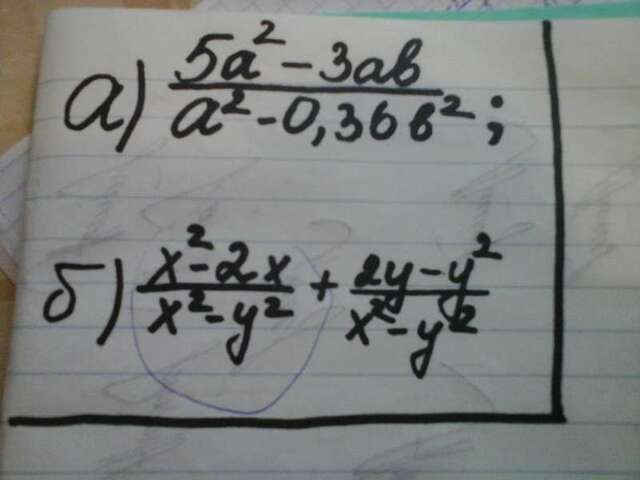 а) (5a² - 3ab)/(a² - 0,36b²);
б) (x² - 2x)/(x² - y²) + (2y - y²)/(x² - y²)